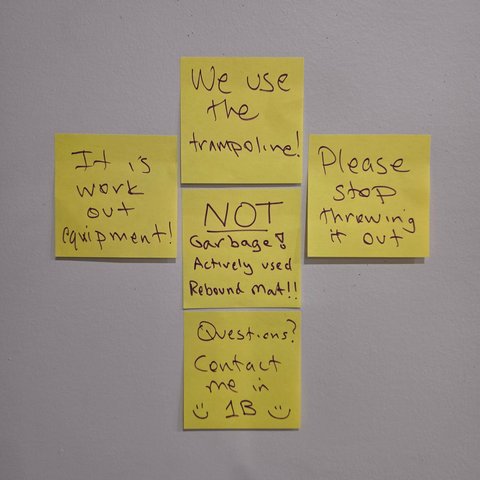 We use
the
trampoline!
It is
work
out
equipment!
NOT
Garbage!
Actively used
Rebound mat!!
Please
stop
throwing
it out
Questions?
Contact
me in
1B